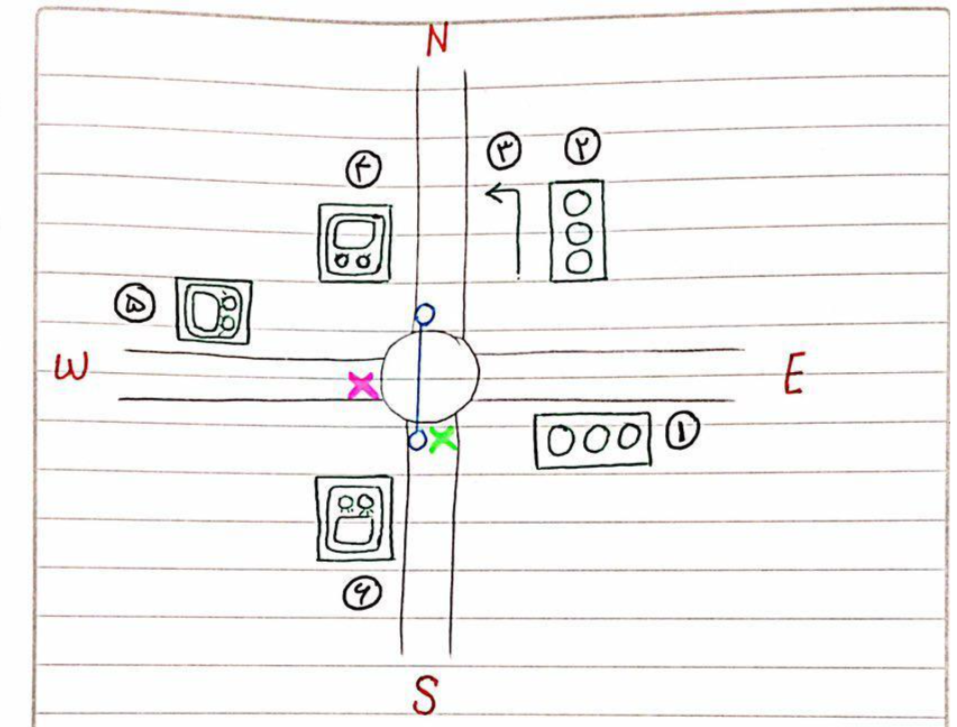 N
۳ ۲
۴
۵
W E
۱
۶
S